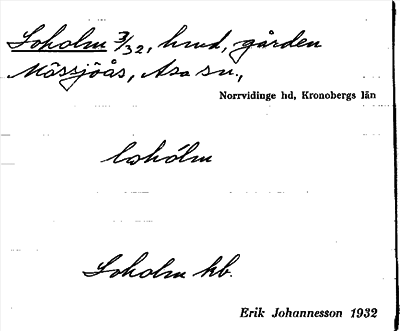 Soholm 3/32, hmd, gården
Mössjöås, Asa sn.,
Norrvidinge hd, Kronobergs län
Soholm hb.
Erik Johannesson 1932